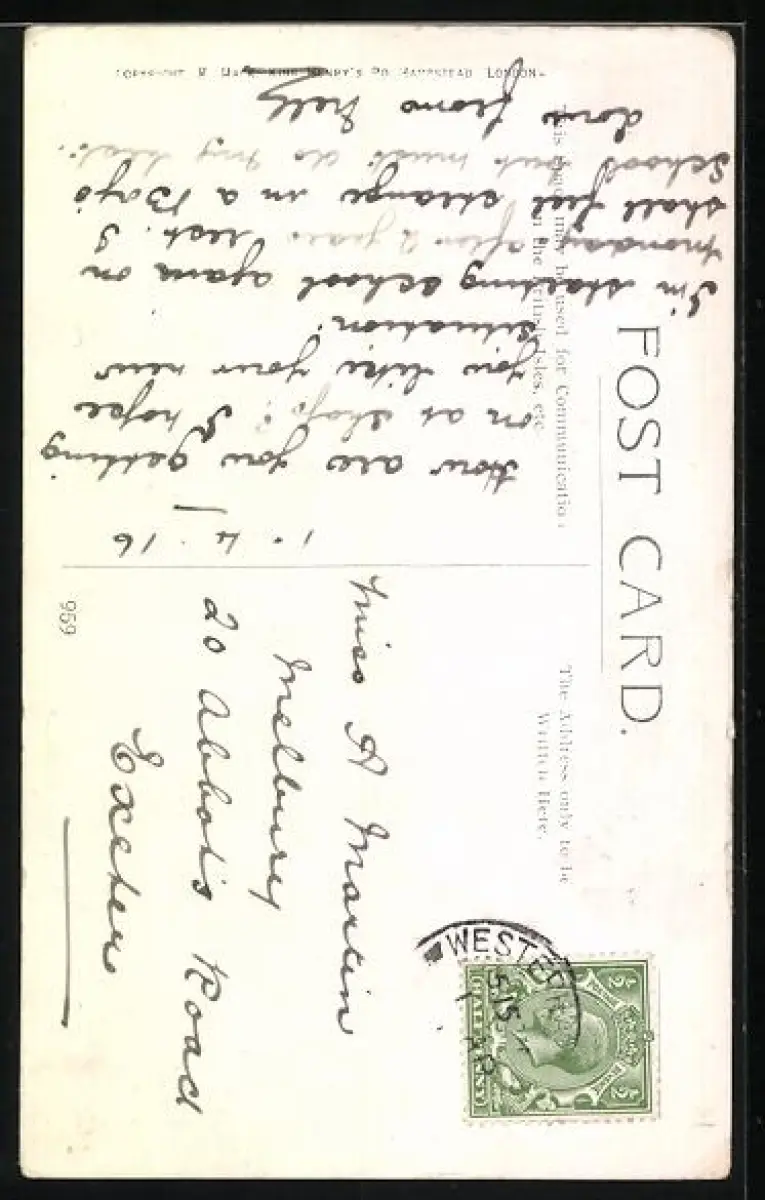 POST CARD.
This space may be used for Communication
in the British Isles, etc.
The Address only to be
Written Here.
1.4.16
How are you getting
on at shop? I hope
you like your new
situation.
I'm starting school again on
monday after 2 years rest. I
shall feel strange in a Boys
School but must do my best.
love from Nell
Miss A Martin
Melbury
20 Abbots Road
Exeter
WESTER
5.15
AP
½ ½
HALFPENNY
959
COPYRIGHT M. KING HENRY'S RD HAMPSTEAD LONDON